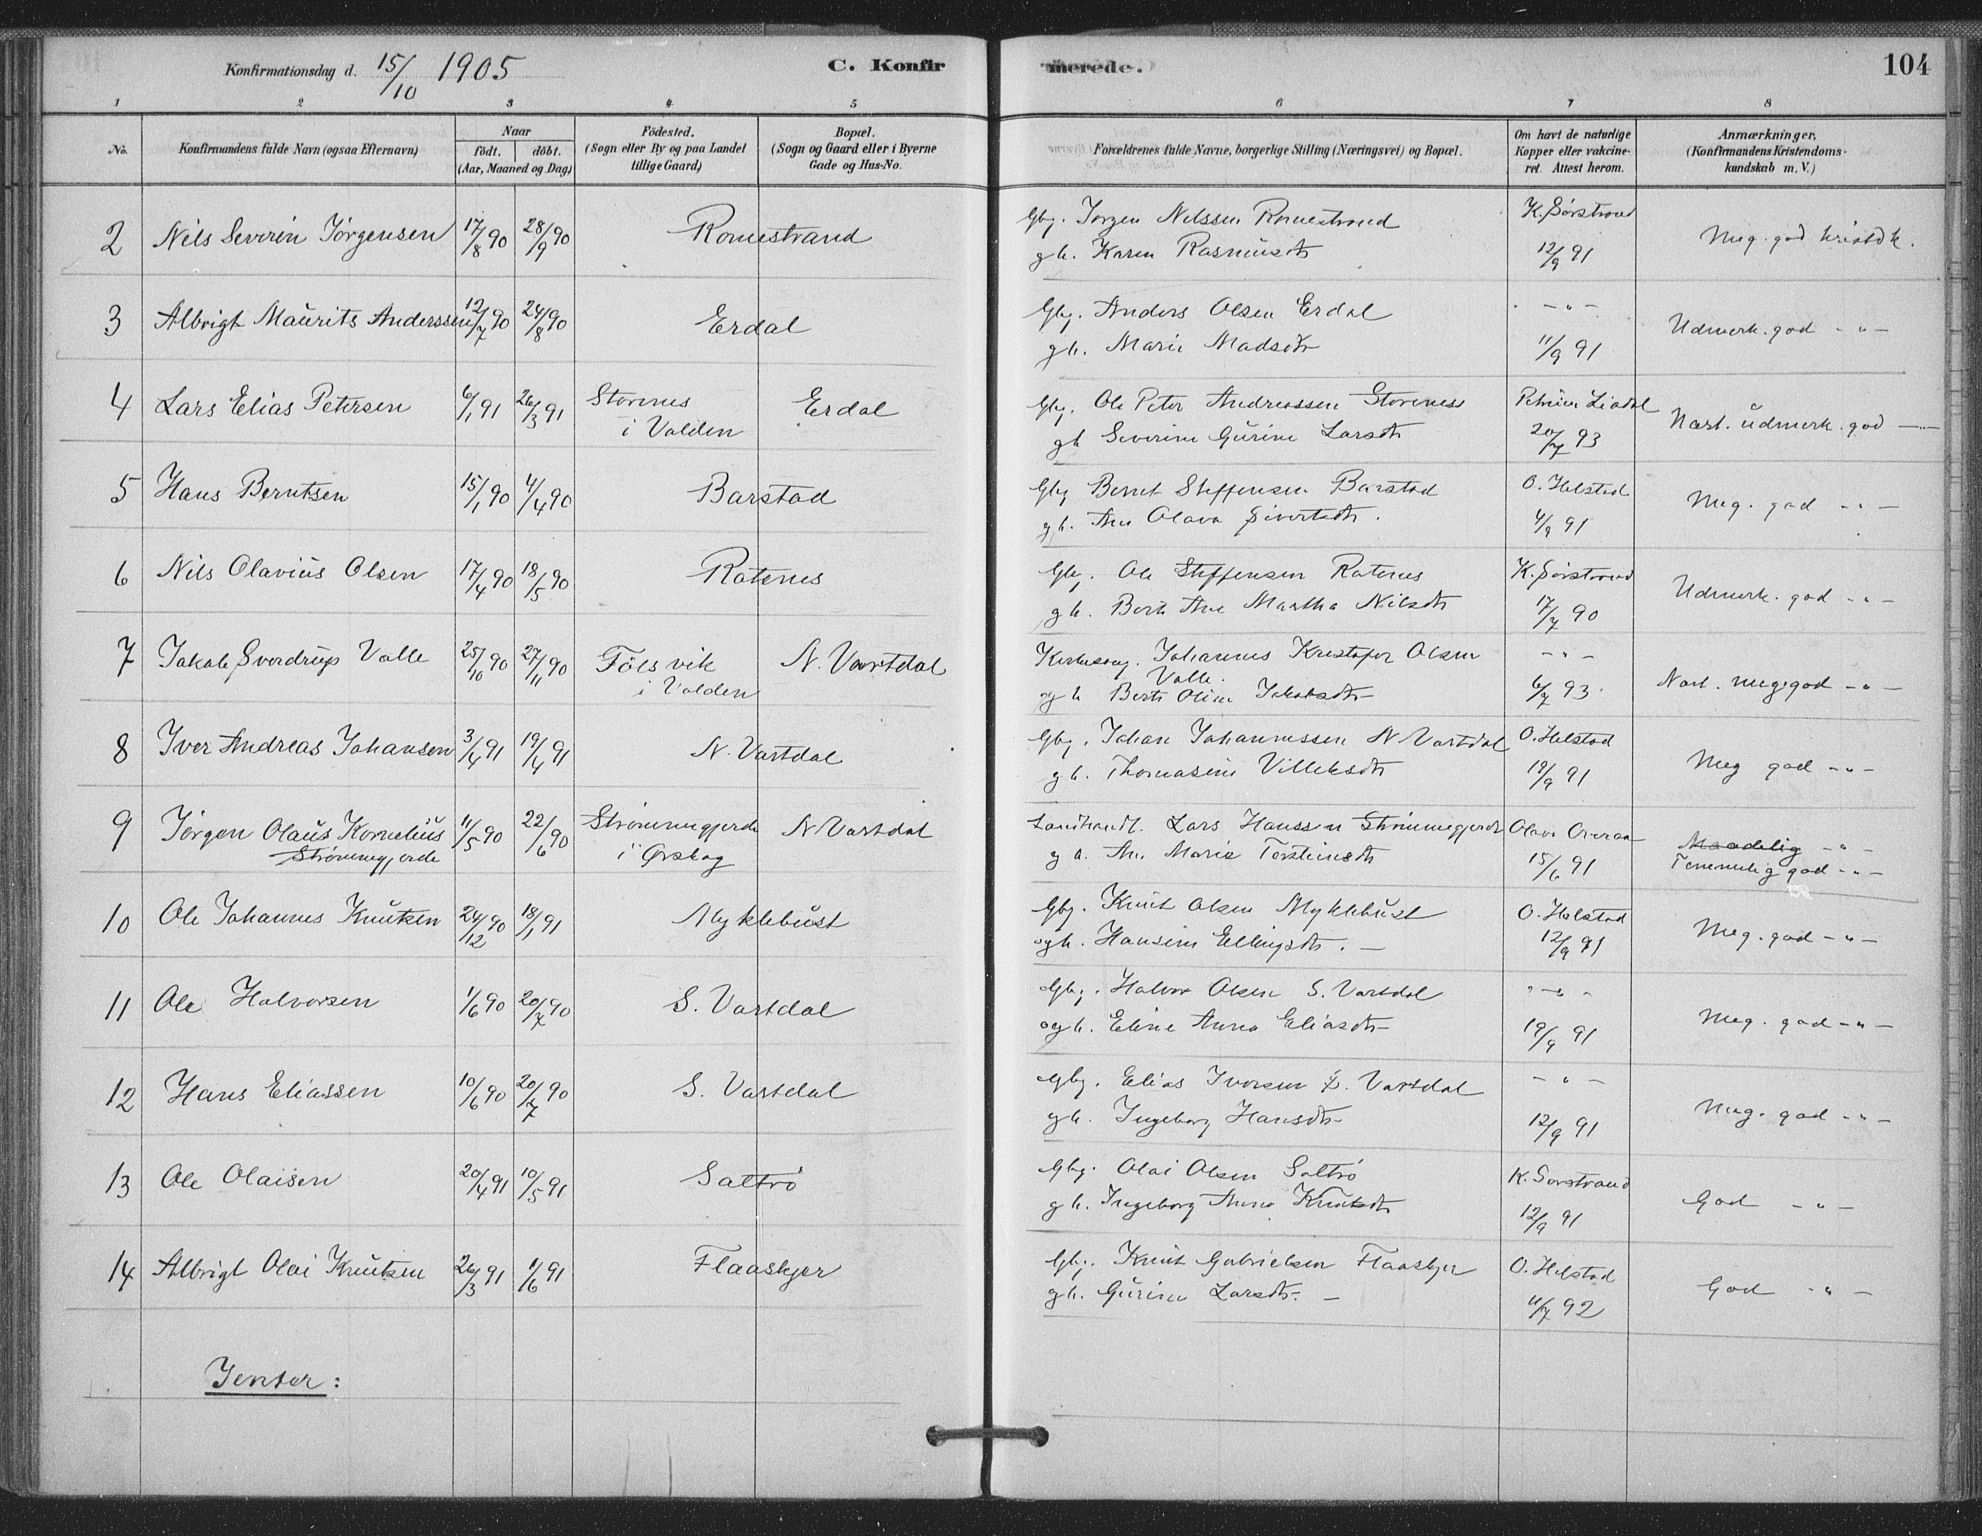 Konfirmationsdag d. 15/10 1905 C. Konfirmerede. 104
1 2 3 4 5 6 7 8
No. Konfirmandens fulde Navn (ogsaa Efternavn) Naar födt. döbt. (Aar, Maaned og Dag) Födested. (Sogn eller By og paa Landet tillige Gaard) Bopæl. (Sogn og Gaard eller i Byerne Gade og Hus-No. Forældrenes fulde Navne, borgerlige Stilling (Næringsvei) og Bopæl. Om havt de naturlige Kopper eller vakcineret. Attest herom. Anmærkninger. (Konfirmandens Kristendomskundskab m. V.)
2 Nils Severin Jörgensen 17/8 90 28/9 90 Romestrand Gbg. Jörgen Nilssen Romestrand K. Sörstrand Meg. god kristdk.
gh. Karen Rasmusdtr 12/9 91
3 Albrigt Maurits Anderssen 12/7 90 24/8 90 Erdal Gbg. Anders Olsen Erdal - " - Udmerk. god - " -
gh. Marie Madsdtr 11/9 91
4 Lars Elias Petersen 6/1 91 26/3 91 Storenes Erdal Gbg. Ole Peter Andreassen Storeness Liadal Næst. udmerk. god - " -
i Volden gh Severine Gurine Larsdtr 20/7 93
5 Hans Berntsen 15/1 90 4/4 90 Barstad Gbg Bernt Steffensen Barstad O. Helstad Meg. god - " -
gh. Ane Olava Sivertsdtr. 4/9 91
6 Nils Olavius Olsen 17/4 90 18/5 90 Ratenes Gbg. Ole Steffensen Ratenes K. Sörstrand Udmerk. god - " -
gh. Berte Ane Martha Nilsdtr 17/7 90
7 Jakob Sverdrup Valle 25/10 90 27/11 90 Fölsvik N. Vartdal Kirkesang. Johannes Kristofer Olsen - " - Næst. meg. god - " -
i Volden Valle.
og h Berte Oline Jakobsdtr 6/7 93
8 Iver Andreas Johansen 3/4 91 19/4 91 N. Vartdal Gbg. Johan Johannessen N. Vartdal O. Helstad Meg god - " -
gh. Thomasine Villeksdtr 19/9 91
9 Jörgen Olaus Kornelius 11/5 90 22/6 90 Strömmegjerde N Vartdal Landhandl. Lars Hanssen Strömmegjerde Olava Overaa Maadelig - " -
Strömmegjerde i Ørskog g h. Ane Marie Torsteinsdtr 15/6 91 Temmelig god - " -
10 Ole Johannes Knutsen 24/12 90 18/1 91 Myklebust Gbg. Knut Olsen Myklebust O. Helstad Meg. god - " -
ogh. Hansine Ellingsdtr. - 12/9 91
11 Ole Halvorsen 1/6 90 20/7 90 S. Vartdal Gbg. Halvor Olsen S. Vartdal - " - Meg. god - " -
ogh. Eline Anna Eliasdtr 19/9 91
12 Hans Eliassen 10/6 90 20/7 90 S. Vartdal Gbg. Elias Iversen S. Vartdal - " - Meg. god - " -
gh. Ingeborg Hansdtr 12/9 91
13 Ole Olaisen 20/4 91 10/5 91 Saltrö Gbg. Olai Olsen Saltrö K. Sorstrand God - " -
gh. Ingeborg Anna Knutsdtr 12/9 91
14 Albrigt Olai Knutsen 26/3 91 1/6 91 Flaaskjer Gbg. Knut Gabrielsen Flaaskjer O. Helstad God - " -
gh. Gurine Larsdtr. - 11/7 92
Jenter: